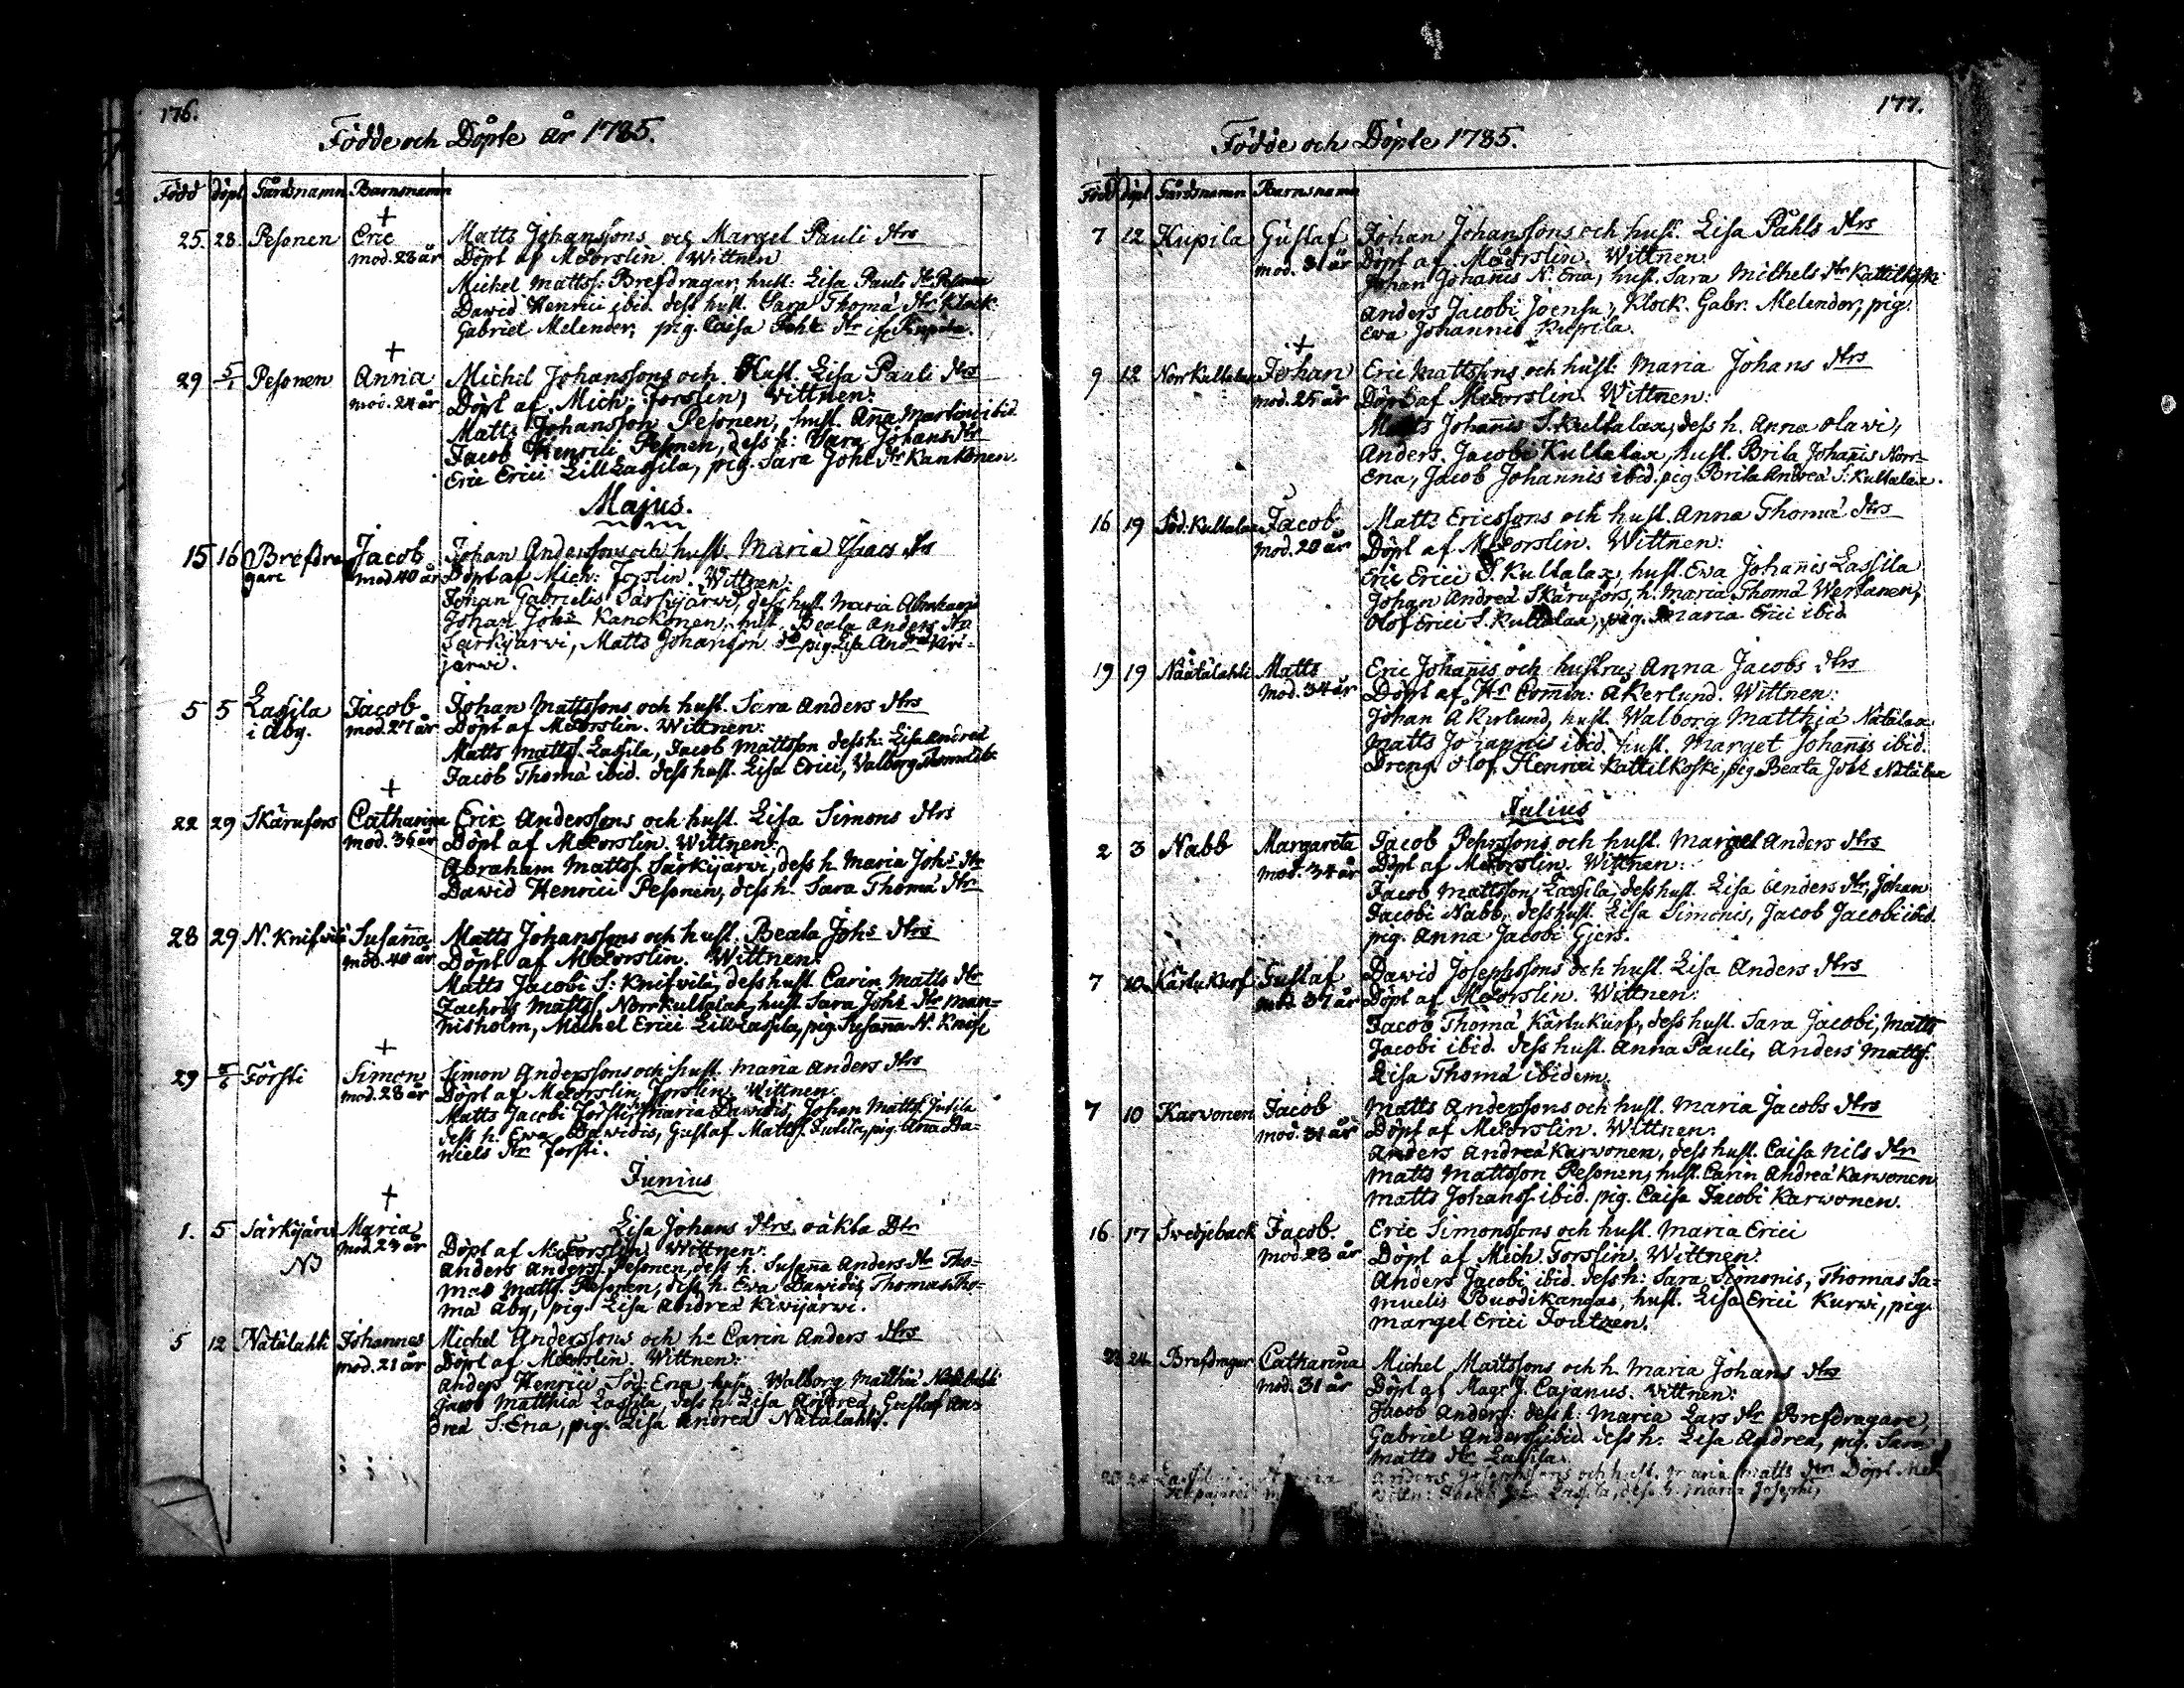 176.
Födde och Döpte år 1785.
Född döpt Gårdsnamn Barnsnamn
25. 28. Pesonen Eric Matts Johanssons och Marget Pauli dtrs
mod. 28 år Döpt af M. Forslin. Wittnen
Michel Mattss: Brefdragar, hust: Lisa Pauli dtr Pesonen
Dawid Henrici ibid. dess hust. Sara Thomæ dtr Klock.
Gabriel Melender, pig. Caisa
29 5/1 Pesonen Anna Michel Johanssons och Hust. Lisa Pauli dtrs
mod. 24 år Döpt af Mich: Forslin, Vittnen:
Matts Johansson Pesonen, hust. Aña Martini ibid.
Jacob Henrici Pesonen, dess h: Sara Johans dtr
Eric Erici LillLassila, pig. Sara Johs dtr Kankonen.
Majus.
15 16 Brefdra Jacob Johan Anderssons och hust. Maria Isaacs dtrs
gare mod 40 år Döpt af Mich: Forslin. Wittnen:
Johan Gabrielis Särkijärwi, dess hust. Maria Abrahams
Johan Johs Kanckonen, hust. Beata Anders dtr
Särkijärwi, Matts Johansson pig Lisa Kiwi-
järwi.
5 5 Lassila Jacob Johan Mattssons och hust. Sara Anders dtrs
i Åby. mod. 27 år Döpt af M Forslin. Wittnen:
Matts Mattss. Lassila, Jacob Mattsson dess h: Lisa Andreæ
Jacob Thomæ ibid. dess hust. Lisa Erici, Valborg
22 29 Skärufors Catharina Eric Anderssons och hust. Lisa Simons dtrs
mod. 36 år Döpt af M Forslin. Wittnen:
Abraham Mattss. Särkijärwi, dess h. Maria Johs dtr
Dawid Henrici Pesonen, dess h. Sara Thomæ dtr
28 29 N. Knifwilä Susaña Matts Johanssons och hust. Beata Johs dtrs
mod. 40 år Döpt af M Forslin. Wittnen:
Matts Jacobi S: Knifwilä, dess hust. Carin Matts dtr
Zachris Mattss. Norrkultalax, hust. Sara Johs dtr Man-
nisholm, Michel Erici LillLassila, pig. Susaña N. Knifv
29 5/6 Försti Simon Simon Anderssons och hust. Maria Anders dtrs
mod. 28 år Döpt af M Forslin. Wittnen:
Matts Jacobi Försti, Maria Dawidis, Johan Mattss. Jutila
dess h. Ewa Dawidis, Gustaf Mattss. Jutila, pig. Aña Da-
niels dtr Försti.
Junius
1. 5 Särkijärwi Maria Lisa Johans dtrs oäkta Dtr
mod. 23 år Döpt af M. Forslin. Wittnen:
NB Anders Anderss. Pesonen, dess h. Susaña Anders dtr Tho-
mas Mattss. Pesonen, dess h. Ewa Dawidis, Thomas Tho-
mæ Åby, pig. Lisa Andreæ Kiwijärwi.
5 12 Nätälahti Johannes Michel Anderssons och h. Carin Anders dtrs
mod. 21 år Döpt af M Forslin. Wittnen:
Anders Henrici Söd: Ena, hust. Walborg Matthiæ Nätälahti
Jacob Matthiæ Lassila, dess h. Lisa Andreæ, Gustaf An-
dreæ S: Ena, pig. Lisa Andreæ Nätälahti.
177.
Födde och Döpte 1785.
Född döpt Gårdsnamn Barnsnamn
7 12 Kupila Gustaf Johan Johanssons och hust. Lisa Påhls dtrs
mod. 31 år Döpt af M Forslin. Wittnen:
Johan Johañis N: Ena, hust. Sara Michels dtr Kattilkoski
Anders Jacobi Joensu, Klock. Gabr. Melender, pig.
Ewa Johannis Kupila.
9 12 Norr Kultalax Johan Eric Mattssons och hust. Maria Johans dtrs
mod. 25 år Döpt af M Forslin. Wittnen:
Matts Johañis S. Kultalax, dess h. Anna Olawi,
Anders Jacobi Kultalax, hust. Brita Johañis Norr-
Ena, Jacob Johannis ibid. pig. Brita Andreæ S: Kultalax.
16 19 Söd: Kultalax Jacob Matts Ericssons och hust. Anna Thomæ dtrs
mod. 20 år Döpt af M Forslin. Wittnen:
Eric Erici S. Kultalax, hust. Ewa Johañis Lassila
Johan Andreæ Skärufors, h. Maria Thomæ Wertanen,
Olof Erici S. Kultalax, pig. Maria Erici ibid
19 19 Näätälahti Matts Eric Johañis och hustru Anna Jacobs dtrs
mod. 34 år Döpt af Hr Comin: Åkerlund. Wittnen:
Johan Åkerlund, hust. Walborg Matthiæ Nätälax
Matts Johannis ibid. hust. Marget Johañis ibid.
Dreng. Olof Henrici Kattilkoski, pig. Beata Johs Nätälax
Julius
2 3 Nabb Margareta Jacob Pehrssons och hust. Marget Anders dtrs
mod. 34 år Döpt af M Forslin. Wittnen:
Jacob Mattsson Lassila, dess hust. Lisa Anders dtr, Johan
Jacobi Nabb, dess hust. Lisa Simonis, Jacob Jacobi ibid.
pig. Anna Jacobi Gjers.
7 10 Kärtukurf Gustaf Dawid Josephssons och hust. Lisa Anders dtrs
mod. 37 år Döpt af M Forslin. Wittnen:
Jacob Thomæ Kärtukurf, dess hust. Sara Jacobi, Matts
Jacobi ibid. dess hust. Anna Pauli, Anders Mattss.
Lisa Thomæ ibidem.
7 10 Karvonen Jacob Matts Anderssons och hust. Maria Jacobs dtrs
mod. 31 år Döpt af M Forslin. Wittnen:
Anders Andreæ Karvonen, dess hust. Caisa Nils dtr
Matts Mattsson Pesonen, hust. Carin Andreæ Karvonen
Matts Johanss. ibid. pig. Caisa Jacobi Karvonen.
16 17 Svedjeback Jacob. Eric Simonssons och hust. Maria Erici
mod 23 år Döpt af Mich. Forslin. Wittnen:
Anders Jacobi ibid. dess h: Sara Simonis, Thomas Sa-
muelis Buodikangas, hust. Lisa Erici Kurwi, pig.
Marget Erici Joutzen.
23 24 Brefdragar Catharina Michel Mattssons och h. Maria Johans dtrs
mod. 31 år Döpt af Mag: J. Cajanus. Vittnen:
Jacob Anderss: dess h: Maria Lars dtr Brefdragare,
Gabriel Anderss. ibid. dess h: Lisa Andreæ, pig. Sara
Matts dtr Lassila.
24 Anders Josephssons och hust. Maria Matts dtr. Döpt
Wittn: Jacob Lassila, dess h: Maria Josephi,